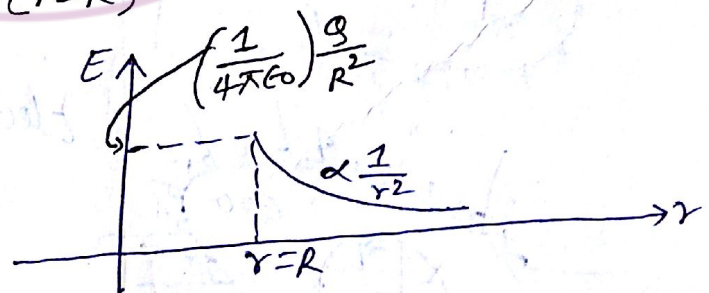 (r>R)
E (1/4πε0) Q/R²
∝ 1/r²
r
r=R